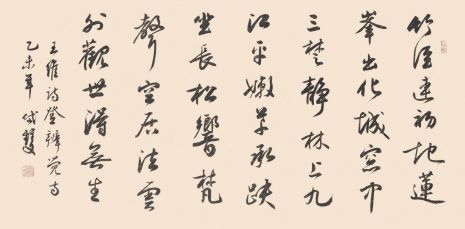 竹徑連初地蓮
峯出化城窓中
三楚靜林上九
江平嫩草承趺
坐長松響梵
聲空居法雲
外觀世得無生
王維詩登辨覺寺
乙未年